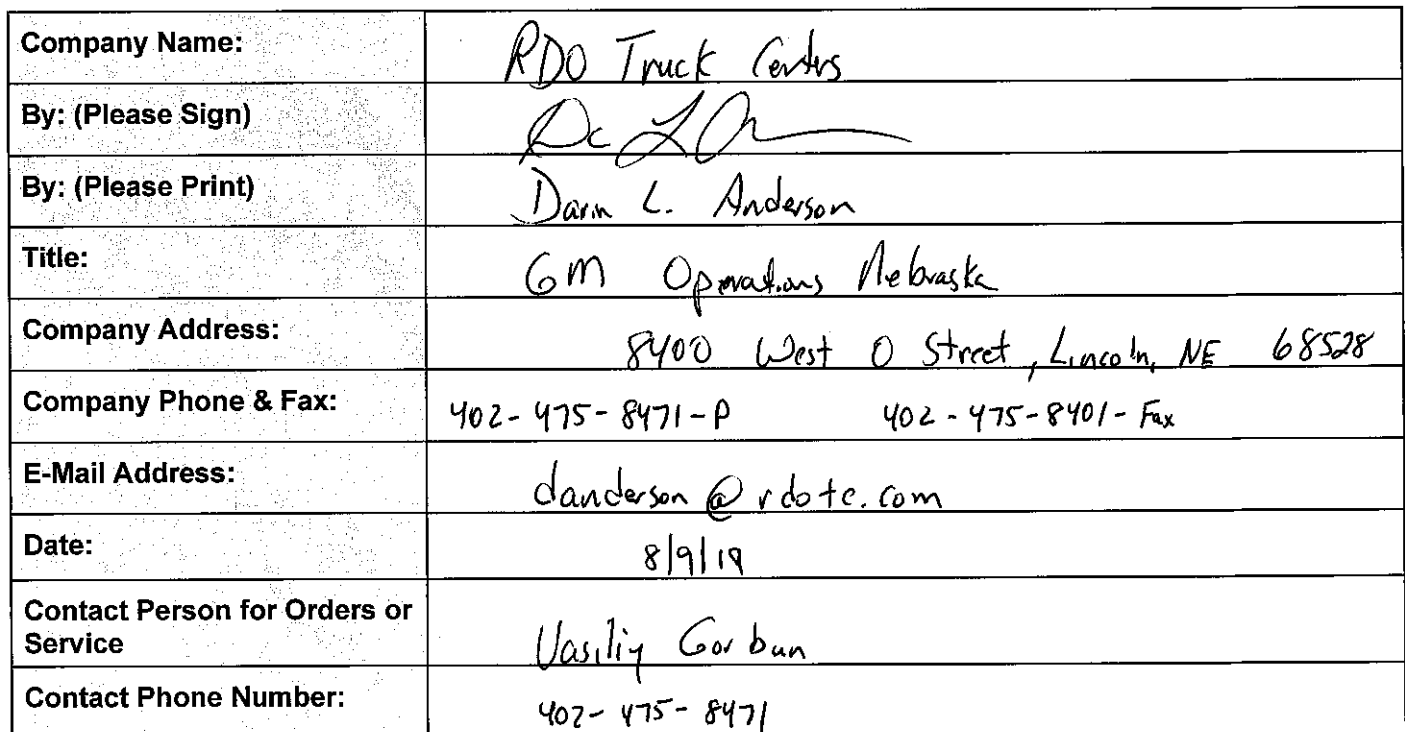 Company Name: RDO Truck Centers
By: (Please Sign)
By: (Please Print) Darin L. Anderson
Title: GM Operations Nebraska
Company Address: 8400 West O Street, Lincoln, NE 68528
Company Phone & Fax: 402-475-8471-P 402-475-8401-Fax
E-Mail Address: danderson@rdotc.com
Date: 8/9/19
Contact Person for Orders or
Service Vasiliy Gorbun
Contact Phone Number: 402-475-8471